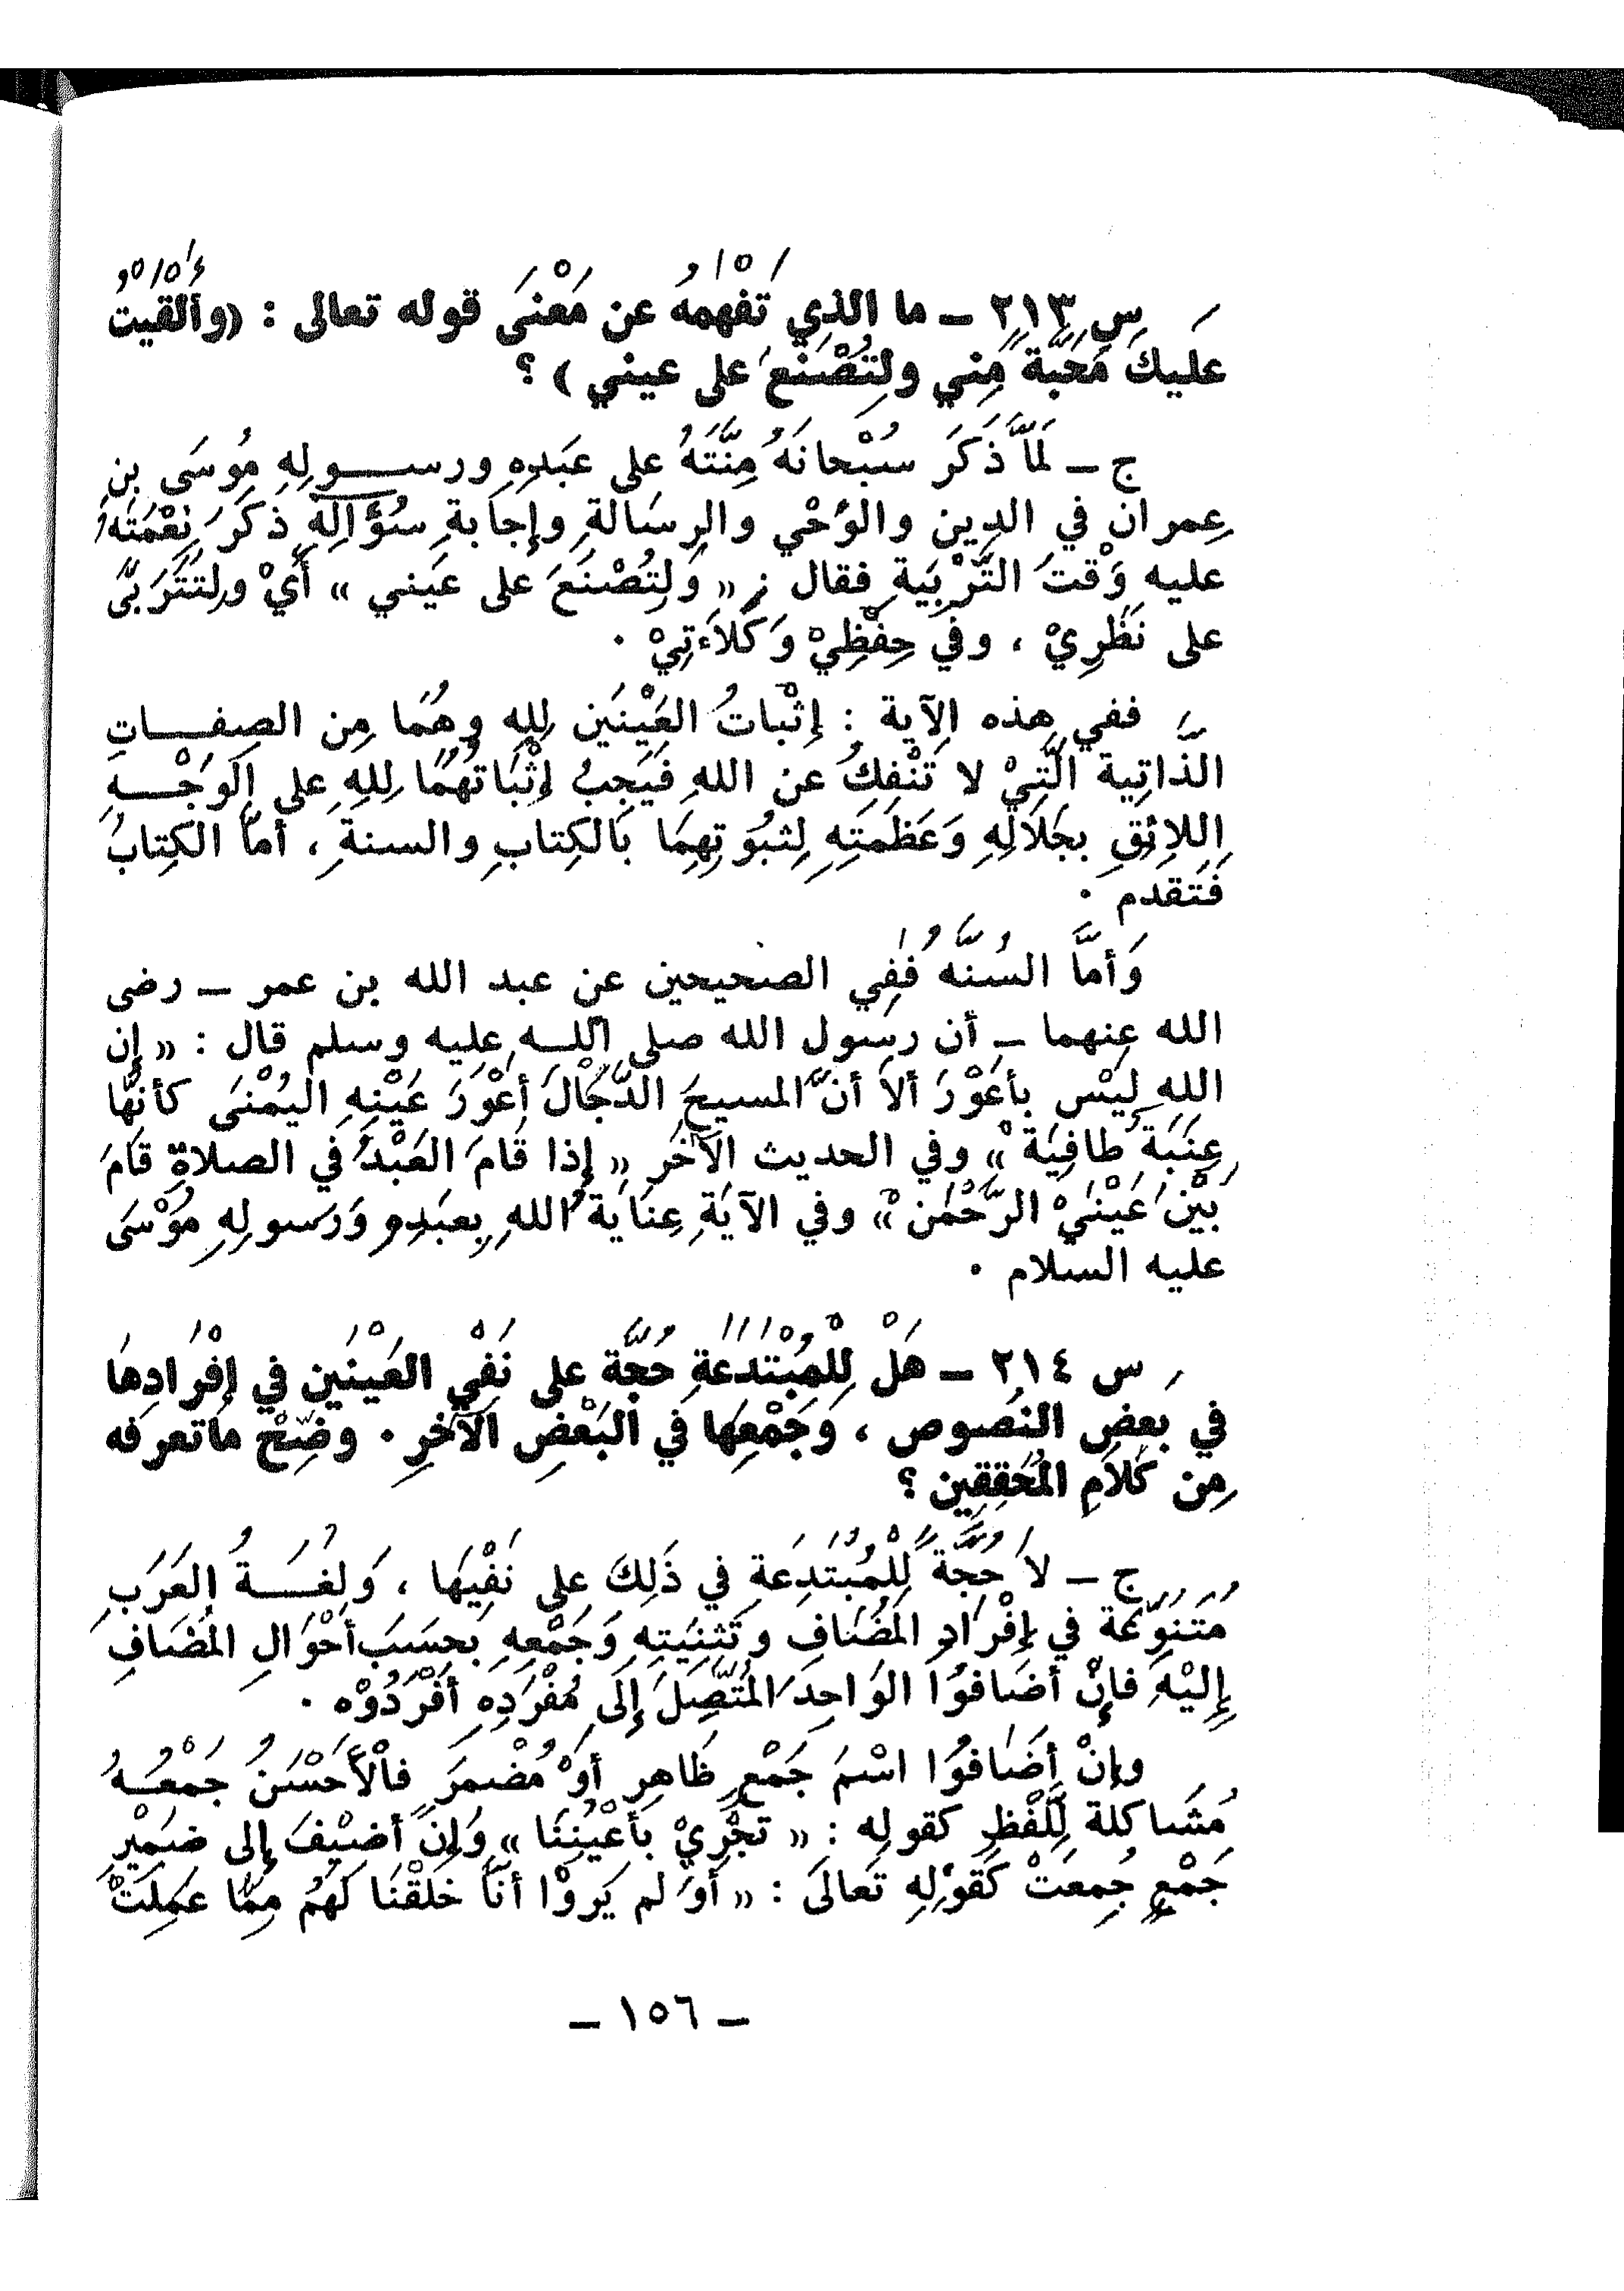 س ٢١٣ ــ ما الذي تَفْهَمُهُ عن مَعْنَى قوله تعالى : (وأَلْقَيْتُ
عَليكَ مَحَبَّةً مِّني ولِتُصْنَعَ على عيني ) ؟
ج ــ لَمَّا ذَكَرَ سُبْحانَهُ مِنَّتَهُ على عَبدِهِ ورســولِهِ مُوسَى بنِ
عِمرانَ في الدِينِ والوَحْي والرِسَالةِ وإِجَابةِ سُؤَالِهِ ذَكَرَ نِعْمَتَهُ
عليه وَقْتَ التَّرْبَيةِ فقال : « وَلِتُصْنَعَ على عَيني » أَيْ ولِتَتَرَبَّى
على نَظَرِيْ ، وفي حِفْظِيْ وَكَلَاءَتِيْ ٠
ففي هذه الآية : إثْباتُ العَيْنَينِ لِلهِ وهُمَا مِن الصِفــاتِ
الذَّاتِيةِ الَّتِيْ لا تَنْفكُ عن اللهِ فَيَجِبُ إثْبَاتُهُمَا لِلهِ على الوَجْــهِ
اللائِقِ بجَلَالِهِ وَعَظَمَتِهِ لِثبُوتِهِمَا بالكِتابِ والسنةِ ، أمَّا الكِتابُ
فَتَقدم ٠
وَأمَّا السُنَّةُ فَفِي الصحيحين عن عبد الله بن عمر ــ رضى
الله عنهما ــ أن رسول الله صلى اللــه عليه وسلم قال : « إن
الله لَيْسَ بأَعْوَرَ ألاَ أنَّ المسيحَ الدَّجَّالَ أعْوَرَ عَيْنِهِ اليُمْنَى كأنَّها
عِنَبَةٌ طافِيَةٌ » وفي الحديث الآخَرِ « إذا قَامَ العَبْدُ في الصلاةِ قَامَ
بَيْنَ عَيْنَيْ الرَّحْمٰن » وفي الآيَةِ عِنَايَةُ اللهِ بِعبَدِهِ وَرَسولِهِ مُوْسَى
عليه السلام ٠
س ٢١٤ ــ هَلْ لِلْمُبْتَدَعَةِ حُجَّةٌ على نَفْيِ العَيْنَينِ في إفْرَادِهَا
في بعضِ النصوصِ ، وَجَمْعِها في البَعْضِ الآخرِ ٠ وضِّحْ ماتَعرفه
مِن كَلَامِ المُحَقِقِين ؟
ج ــ لاَ حُجَّةَ لِلْمُبْتَدِعَةِ في ذَلِكَ على نَفْيِهَا ، وَلغَــةُ العَرَبِ
مُتَنَوِّعَة في إفْرَادِ المُضَافِ وتَثنِيَتِهِ وَجَمْعِهِ بحِسَبَ أحْوَالِ المُضَافِ
إِلَيْهِ فإِنْ أضَافوُا الوَاحِدَ المُتَّصِلَ إِلَى مُفْرَدِهِ أفْرَدُوْه ٠
وإنْ أضَافوُا اسْمَ جَمْعٍ ظَاهِرٍ أوْ مُضْمَرٍ فالْأَحْسَنُ جَمْعُــهُ
مُشَاكلةً لِلَّفْظِ كقولِه : « تجْرِيْ بأَعْيُنِنَا » وَإنْ أضيْفَ إلى ضمَيْرِ
جَمْعٍ جُمعَتْ كَقوْلِهِ تَعالىَ : « أوَ لم يَروْا أنَّا خَلَقْنَا لَهُمْ مِمَّا عَمِلَتْ
ــ ١٥٦ ــ